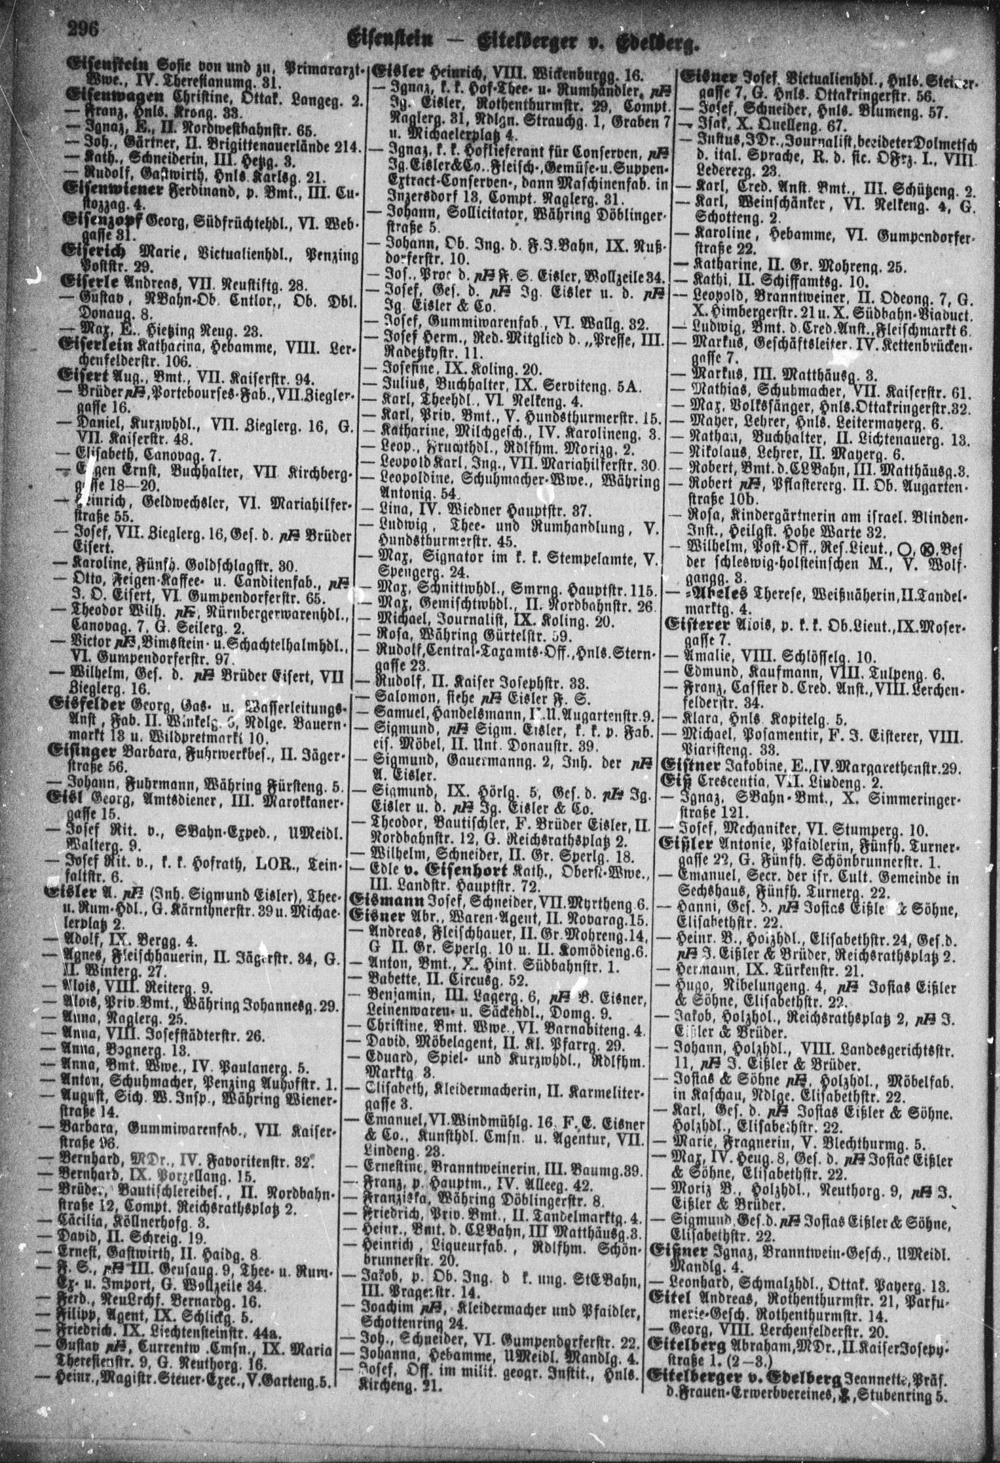 296
Eisenstein — Eitelberger v. Edelberg.
Eisenstein Sofie von und zu, Primararzt-
Wwe., IV. Theresianumg. 31.
Eisenwagen Christine, Ottak. Langeg. 2.
— Franz, Hnls. Krong. 33.
— Ignaz, E., II. Nordwestbahnstr. 65.
— Joh., Gärtner, II. Brigittenauerlände 214.
— Kath., Schneiderin, III. Hetzg. 3.
— Rudolf, Gastwirth, Hnls. Karlsg. 21.
Eisenwiener Ferdinand, p. Bmt., III. Cu-
stozzag. 4.
Eisenzopf Georg, Südfrüchtehdl., VI. Web-
gasse 31.
Eiserich Marie, Victualienhdl., Penzing
Poststr. 29.
Eiserle Andreas, VII. Neustiftg. 28.
— Gustav, NBahn-Ob. Cntlor., Ob. Dbl.
Donaug. 8.
— Max, E., Hietzing Neug. 23.
Eiserlein Katharina, Hebamme, VIII. Ler-
chenfelderstr. 106.
Eisert Aug., Bmt., VII. Kaiserstr. 94.
— Brüder, Portebourses-Fab., VII. Ziegler-
gasse 16.
— Daniel, Kurzwhdl., VII. Zieglerg. 16, G.
VII. Kaiserstr. 48.
— Elisabeth, Canovag. 7.
— Eugen Ernst, Buchhalter, VII Kirchberg-
gasse 18—20.
— Heinrich, Geldwechsler, VI. Mariahilfer-
straße 55.
— Josef, VII. Zieglerg. 16, Ges. d. Brüder
Eisert.
— Karoline, Fünfh. Goldschlagstr. 30.
— Otto, Feigen-Kaffee- u. Canditenfab.,
J. O. Eisert, VI. Gumpendorferstr. 65.
— Theodor Wilh., Nürnbergerwarenhdl.,
Canovag. 7, G. Seilerg. 2.
— Victor, Bimsstein- u. Schachtelhalmhdl.,
VI. Gumpendorferstr. 97.
— Wilhelm, Ges. d. Brüder Eisert, VII
Zieglerg. 16.
Eisfelder Georg, Gas- u. Wasserleitungs-
Anst., Fab. II. Winkelg. 6, Ndlge. Bauern-
markt 13 u. Wildpretmarkt 10.
Eisinger Barbara, Fuhrwerkbes., II. Jäger-
straße 56.
— Johann, Fuhrmann, Währing Fürsteng. 5.
Eisl Georg, Amtsdiener, III. Marokkaner-
gasse 15.
— Josef Rit. v., SBahn-Exped., UMeidl.
Walterg. 9.
— Josef Rit. v., k. k. Hofrath, LOR., Tein-
faltstr. 6.
Eisler A. (Inh. Sigmund Eisler), Thee-
u. Rum-Hdl., G. Kärnthnerstr. 39 u. Michae-
lerplatz 2.
— Adolf, IX. Bergg. 4.
— Agnes, Fleischhauerin, II. Jägerstr. 34, G.
II. Winterg. 27.
— Alois, VIII. Reiterg. 9.
— Alois, Priv. Bmt., Währing Johannesg. 29.
— Anna, Naglerg. 25.
— Anna, VIII. Josefstädterstr. 26.
— Anna, Bognerg. 13.
— Anna, Bmt. Wwe., IV. Paulanerg. 5.
— Anton, Schuhmacher, Penzing Auhofstr. 1.
— August, Sich. W. Insp., Währing Wiener-
straße 14.
— Barbara, Gummiwarenfab., VII. Kaiser-
straße 96.
— Bernhard, MDr., IV. Favoritenstr. 32.
— Bernhard, IX. Porzellang. 15.
— Brüder, Bautischlereibes., II. Nordbahn-
straße 12, Compt. Reichsrathsplatz 2.
— Cäcilia, Köllnerhofg. 3.
— David, II. Schreig. 19.
— Ernest, Gastwirth, II. Haidg. 8.
— F. S., III. Geusaug. 9, Thee- u. Rum-
Ex- u. Import, G. Wollzeile 34.
— Ferd., NeuLrchf. Bernardg. 16.
— Filipp, Agent, IX. Schlickg. 5.
— Friedrich, IX. Liechtensteinstr. 44a.
— Gustav, Currentw.-Cmsn., IX. Maria
Theresienstr. 9, G. Neuthorg. 16.
— Heinr., Magistr. Steuer-Exec., V. Garteng. 5.
Eisler Heinrich, VIII. Wickenburgg. 16.
— Ignaz, k. k. Hof-Thee- u. Rumhändler,
Ig. Eisler, Rothenthurmstr. 29, Compt.
Naglerg. 31, Ndlgn. Strauchg. 1, Graben 7
u. Michaelerplatz 4.
— Ignaz, k. k. Hoflieferant für Conserven,
Ig. Eisler & Co., Fleisch-, Gemüse- u. Suppen-
Extract-Conserven-, dann Maschinenfab. in
Inzersdorf 13, Compt. Naglerg. 31.
— Johann, Sollicitator, Währing Döblinger-
straße 5.
— Johann, Ob. Ing. d. F.J.Bahn, IX. Nuß-
dorferstr. 10.
— Jos., Proc d. F. S. Eisler, Wollzeile 34.
— Josef, Ges. d. Ig. Eisler u. d.
Ig. Eisler & Co.
— Josef, Gummiwarenfab., VI. Wallg. 32.
— Josef Herm., Red. Mitglied d. „Presse, III.
Radetzkystr. 11.
— Josefine, IX. Koling. 20.
— Julius, Buchhalter, IX. Serviteng. 5A.
— Karl, Theehdl., VI. Nelkeng. 4.
— Karl, Priv. Bmt., V. Hundsthurmerstr. 15.
— Katharine, Milchgesch., IV. Karolineng. 3.
— Leop., Fruchthdl., Rdlfhm. Morizg. 2.
— Leopold Karl, Ing., VII. Mariahilferstr. 30.
— Leopoldine, Schuhmacher-Wwe., Währing
Antonig. 54.
— Lina, IV. Wiedner Hauptstr. 37.
— Ludwig, Thee- und Rumhandlung, V.
Hundsthurmerstr. 45.
— Max, Signator im k. k. Stempelamte, V.
Spengerg. 24.
— Max, Schnittwhdl., Smrng. Hauptstr. 115.
— Max, Gemischtwhdl., II. Nordbahnstr. 26.
— Michael, Journalist, IX. Koling. 20.
— Rosa, Währing Gürtelstr. 59.
— Rudolf, Central-Taxamts-Off., Hnls. Stern-
gasse 23.
— Rudolf, II. Kaiser Josephstr. 33.
— Salomon, siehe Eisler F. S.
— Samuel, Handelsmann, II. U. Augartenstr. 9.
— Sigmund, Sigm. Eisler, k. k. p. Fab.
eis. Möbel, II. Unt. Donaustr. 39.
— Sigmund, Gauermanng. 2, Inh. der
A. Eisler.
— Sigmund, IX. Hörlg. 5, Ges. d. Ig.
Eisler u. d. Ig. Eisler & Co.
— Theodor, Bautischler, F. Brüder Eisler, II.
Nordbahnstr. 12, G. Reichsrathsplatz 2.
— Wilhelm, Schneider, II. Gr. Sperlg. 18.
— Edle v. Eisenhort Kath., Oberst-Wwe.,
III. Landstr. Hauptstr. 72.
Eismann Josef, Schneider, VII. Myrtheng. 6.
Eisner Abr., Waren-Agent, II. Novarag. 15.
— Andreas, Fleischhauer, II. Gr. Mohreng. 14,
G II. Gr. Sperlg. 10 u. II. Komödieng. 6.
— Anton, Bmt., X. Hint. Südbahnstr. 1.
— Babette, II. Circusg. 52.
— Benjamin, III. Lagerg. 6, B. Eisner,
Leinenwaren- u. Säckehdl., Domg. 9.
— Christine, Bmt. Wwe., VI. Barnabiteng. 4.
— David, Möbelagent, II. Kl. Pfarrg. 29.
— Eduard, Spiel- und Kurzwhdl., Rdlfhm.
Marktg. 3.
— Elisabeth, Kleidermacherin, II. Karmeliter-
gasse 3.
— Emanuel, VI. Windmühlg. 16, F. E. Eisner
& Co., Kunsthdl. Cmsn. u. Agentur, VII.
Lindeng. 23.
— Ernestine, Branntweinerin, III. Baumg. 39.
— Franz, p. Hauptm., IV. Alleeg. 42.
— Franziska, Währing Döblingerstr. 8.
— Friedrich, Priv. Bmt., II. Tandelmarktg. 4.
— Heinr., Bmt. d. CLBahn, III Matthäusg. 3.
— Heinrich, Liqueurfab., Rdlfhm. Schön-
brunnerstr. 20.
— Jakob, p. Ob. Ing. d k. ung. StEBahn,
III. Pragerstr. 14.
— Joachim, Kleidermacher und Pfaidler,
Schottenring 24.
— Joh., Schneider, VI. Gumpendorferstr. 22.
— Johanna, Hebamme, UMeidl. Mandlg. 4.
— Josef, Off. im milit. geogr. Instit., Hnls.
Kircheng. 21.
Eisner Josef, Victualienhdl., Hnls. Steiner-
gasse 7, G. Hnls. Ottakringerstr. 56.
— Josef, Schneider, Hnls. Blumeng. 57.
— Isak, X. Quelleng. 67.
— Justus, JDr., Journalist, beeideter Dolmetsch
d. ital. Sprache, R. d. sic. OFrz. I., VIII
Ledererg. 23.
— Karl, Cred. Anst. Bmt., III. Schützeng. 2.
— Karl, Weinschänker, VI. Nelkeng. 4, G.
Schotteng. 2.
— Karoline, Hebamme, VI. Gumpendorfer-
straße 22.
— Katharine, II. Gr. Mohreng. 25.
— Kathi, II. Schiffamtsg. 10.
— Leopold, Branntweiner, II. Odeong. 7, G.
X. Himbergerstr. 21 u. X. Südbahn-Viaduct.
— Ludwig, Bmt. d. Cred. Anst., Fleischmarkt 6.
— Markus, Geschäftsleiter, IV. Kettenbrücken-
gasse 7.
— Markus, III. Matthäusg. 3.
— Mathias, Schuhmacher, VII. Kaiserstr. 61.
— Max, Volkssänger, Hnls. Ottakringerstr. 32.
— Mayer, Lehrer, Hnls. Leitermayerg. 6.
— Nathan, Buchhalter, II. Lichtenauerg. 13.
— Nikolaus, Lehrer, II. Mayerg. 6.
— Robert, Bmt. d. CLBahn, III. Matthäusg. 3.
— Robert, Pflasterer, II. Ob. Augarten-
straße 10b.
— Rosa, Kindergärtnerin am israel. Blinden-
Inst., Heilgst. Hohe Warte 32.
— Wilhelm, Post-Off., Res. Lieut., Bes
der schleswig-holsteinschen M., V. Wolf-
gangg. 3.
— -Abeles Therese, Weißnäherin, II. Tandel-
marktg. 4.
Eisterer Alois, p. k. k. Ob. Lieut., IX. Moser-
gasse 7.
— Amalie, VIII. Schlösselg. 10.
— Edmund, Kaufmann, VIII. Tulpeng. 6.
— Franz, Cassier d. Cred. Anst., VIII. Lerchen-
felderstr. 34.
— Klara, Hnls. Kapitelg. 5.
— Michael, Posamentir, F. J. Eisterer, VIII.
Piaristeng. 33.
Eistner Jakobine, E., IV. Margarethenstr. 29.
Eiß Crescentia, VII. Lindeng. 2.
— Ignaz, SBahn-Bmt., X. Simmeringer-
straße 121.
— Josef, Mechaniker, VI. Stumperg. 10.
Eißler Antonie, Pfaidlerin, Fünfh. Turner-
gasse 22, G. Fünfh. Schönbrunnerstr. 1.
— Emanuel, Secr. der isr. Cult. Gemeinde in
Sechshaus, Fünfh. Turnerg. 22.
— Hanni, Ges. d. Josias Eißler & Söhne,
Elisabethstr. 22.
— Heinr. B., Holzhdl., Elisabethstr. 24, Ges. d.
J. Eißler & Brüder, Reichsrathsplatz 2.
— Hermann, IX. Türkenstr. 21.
— Hugo, Nibelungeng. 4, Josias Eißler
& Söhne, Elisabethstr. 22.
— Jakob, Holzhdl., Reichsrathsplatz 2, J.
Eißler & Brüder.
— Johann, Holzhdl., VIII. Landesgerichtsstr.
11, J. Eißler & Brüder.
— Josias & Söhne, Holzhdl., Möbelfab.
in Kaschau, Ndlge. Elisabethstr. 22.
— Karl, Ges. d. Josias Eißler & Söhne,
Holzhdl., Elisabethstr. 22.
— Marie, Fragnerin, V. Blechthurmg. 5.
— Max, IV. Heug. 8, Ges. d. Josias Eißler
& Söhne, Elisabethstr. 22.
— Moriz B., Holzhdl., Neuthorg. 9, J.
Eißler & Brüder.
— Sigmund, Ges. d. Josias Eißler & Söhne,
Elisabethstr. 22.
Eißner Ignaz, Branntwein-Gesch., UMeidl.
Mandlg. 4.
— Leonhard, Schmalzhdl., Ottak. Payerg. 13.
Eitel Andreas, Rothenthurmstr. 21, Parfu-
merie-Gesch. Rothenthurmstr. 14.
— Georg, VIII. Lerchenfelderstr. 20.
Eitelberg Abraham, MDr., II. Kaiser Joseph-
straße 1. (2—3.)
Eitelberger v. Edelberg Jeannette, Präs.
d. Frauen-Erwerbvereines, Stubenring 5.